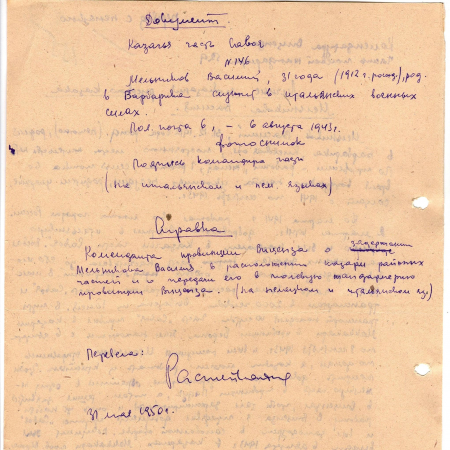 Документ.
Казачья часть Савоя
№ 146
Мельников Василий, 31 года (1912 г. рожд.), род.
в Варваровка служит в итальянских военных
силах.
Пол. почта 6, – 6 августа 1943 г.
фотоснимок
Подпись командира части
(на итальянском и нем. языках)
Справка
Коменданта провинции Виценза о задержании
Мельникова Василия в расположении казарм
частей и о передаче его в полевую жандармерию
провинции Виценза. (на немецком и итальянском яз)
Перевела:
31 мая 1950 г.